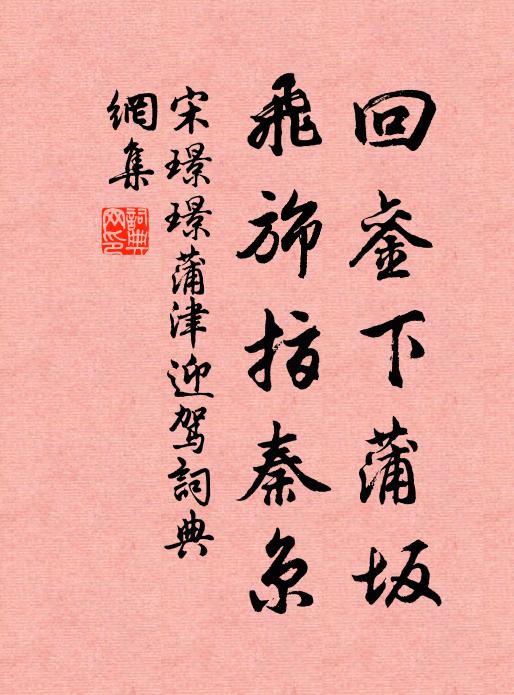 回銮下蒲坂
飛旆指秦京
宋璟璟蒲津迎駕詞典
網集
詞典網印